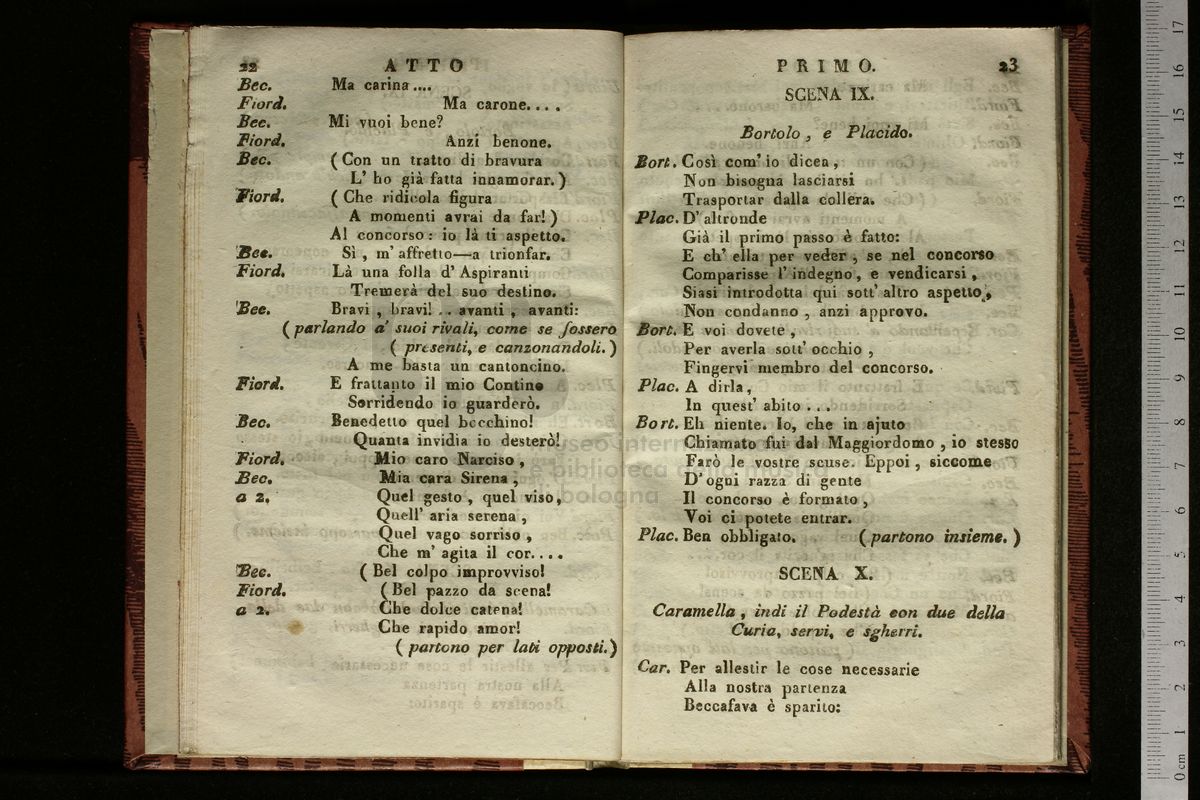 22 ATTO
Bec. Ma carina....
Fiord. Ma carone....
Bec. Mi vuoi bene?
Fiord. Anzi benone.
Bec. (Con un tratto di bravura
L' ho già fatta innamorar.)
Fiord. (Che ridicola figura
A momenti avrai da far!)
Al concorso: io là ti aspetto.
Bec. Sì, m' affretto—a trionfar.
Fiord. Là una folla d' Aspiranti
Tremerà del suo destino.
Bec. Bravi, bravi! .. avanti, avanti:
(parlando a' suoi rivali, come se fossero
(presenti, e canzonandoli.)
A me basta un cantoncino.
Fiord. E frattanto il mio Contino
Sorridendo io guarderò.
Bec. Benedetto quel bocchino!
Quanta invidia io desterò!
Fiord. Mio caro Narciso,
Bec. Mia cara Sirena,
a 2. Quel gesto, quel viso,
Quell' aria serena,
Quel vago sorriso,
Che m' agita il cor....
Bec. (Bel colpo improvviso!
Fiord. (Bel pazzo da scena!
a 2. Che dolce catena!
Che rapido amor!
(partono per lati opposti.)
PRIMO. 23
SCENA IX.
Bortolo, e Placido.
Bort. Così com' io dicea,
Non bisogna lasciarsi
Trasportar dalla collera.
Plac. D' altronde
Già il primo passo è fatto:
E ch' ella per veder, se nel concorso
Comparisse l' indegno, e vendicarsi,
Siasi introdotta qui sott' altro aspetto,
Non condanno, anzi approvo.
Bort. E voi dovete,
Per averla sott' occhio,
Fingervi membro del concorso.
Plac. A dirla,
In quest' abito ...
Bort. Eh niente. Io, che in ajuto
Chiamato fui dal Maggiordomo, io stesso
Farò le vostre scuse. Eppoi, siccome
D' ogni razza di gente
Il concorso è formato,
Voi ci potete entrar.
Plac. Ben obbligato. (partono insieme.)
SCENA X.
Caramella, indi il Podestà con due della
Curia, servi, e sgherri.
Car. Per allestir le cose necessarie
Alla nostra partenza
Beccafava è sparito:
museo internazionale
e biblioteca della musica
di bologna
0 cm 1 2 3 4 5 6 7 8 9 10 11 12 13 14 15 16 17